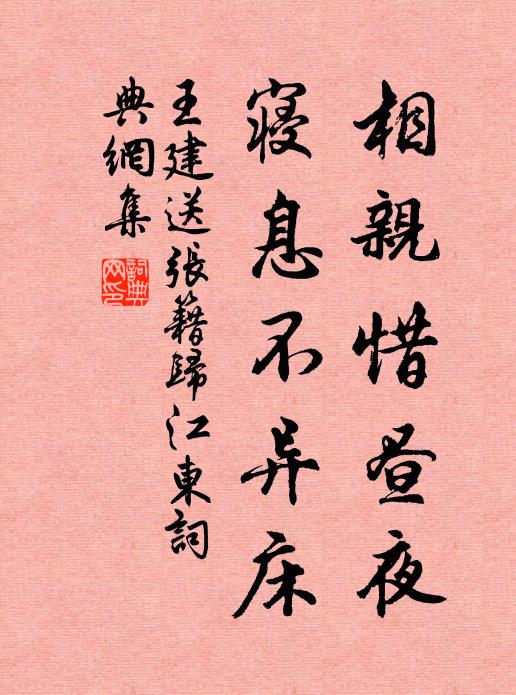 相親惜昼夜
寝息不异床
王建送張籍歸江東詞
典網集
詞典
网印